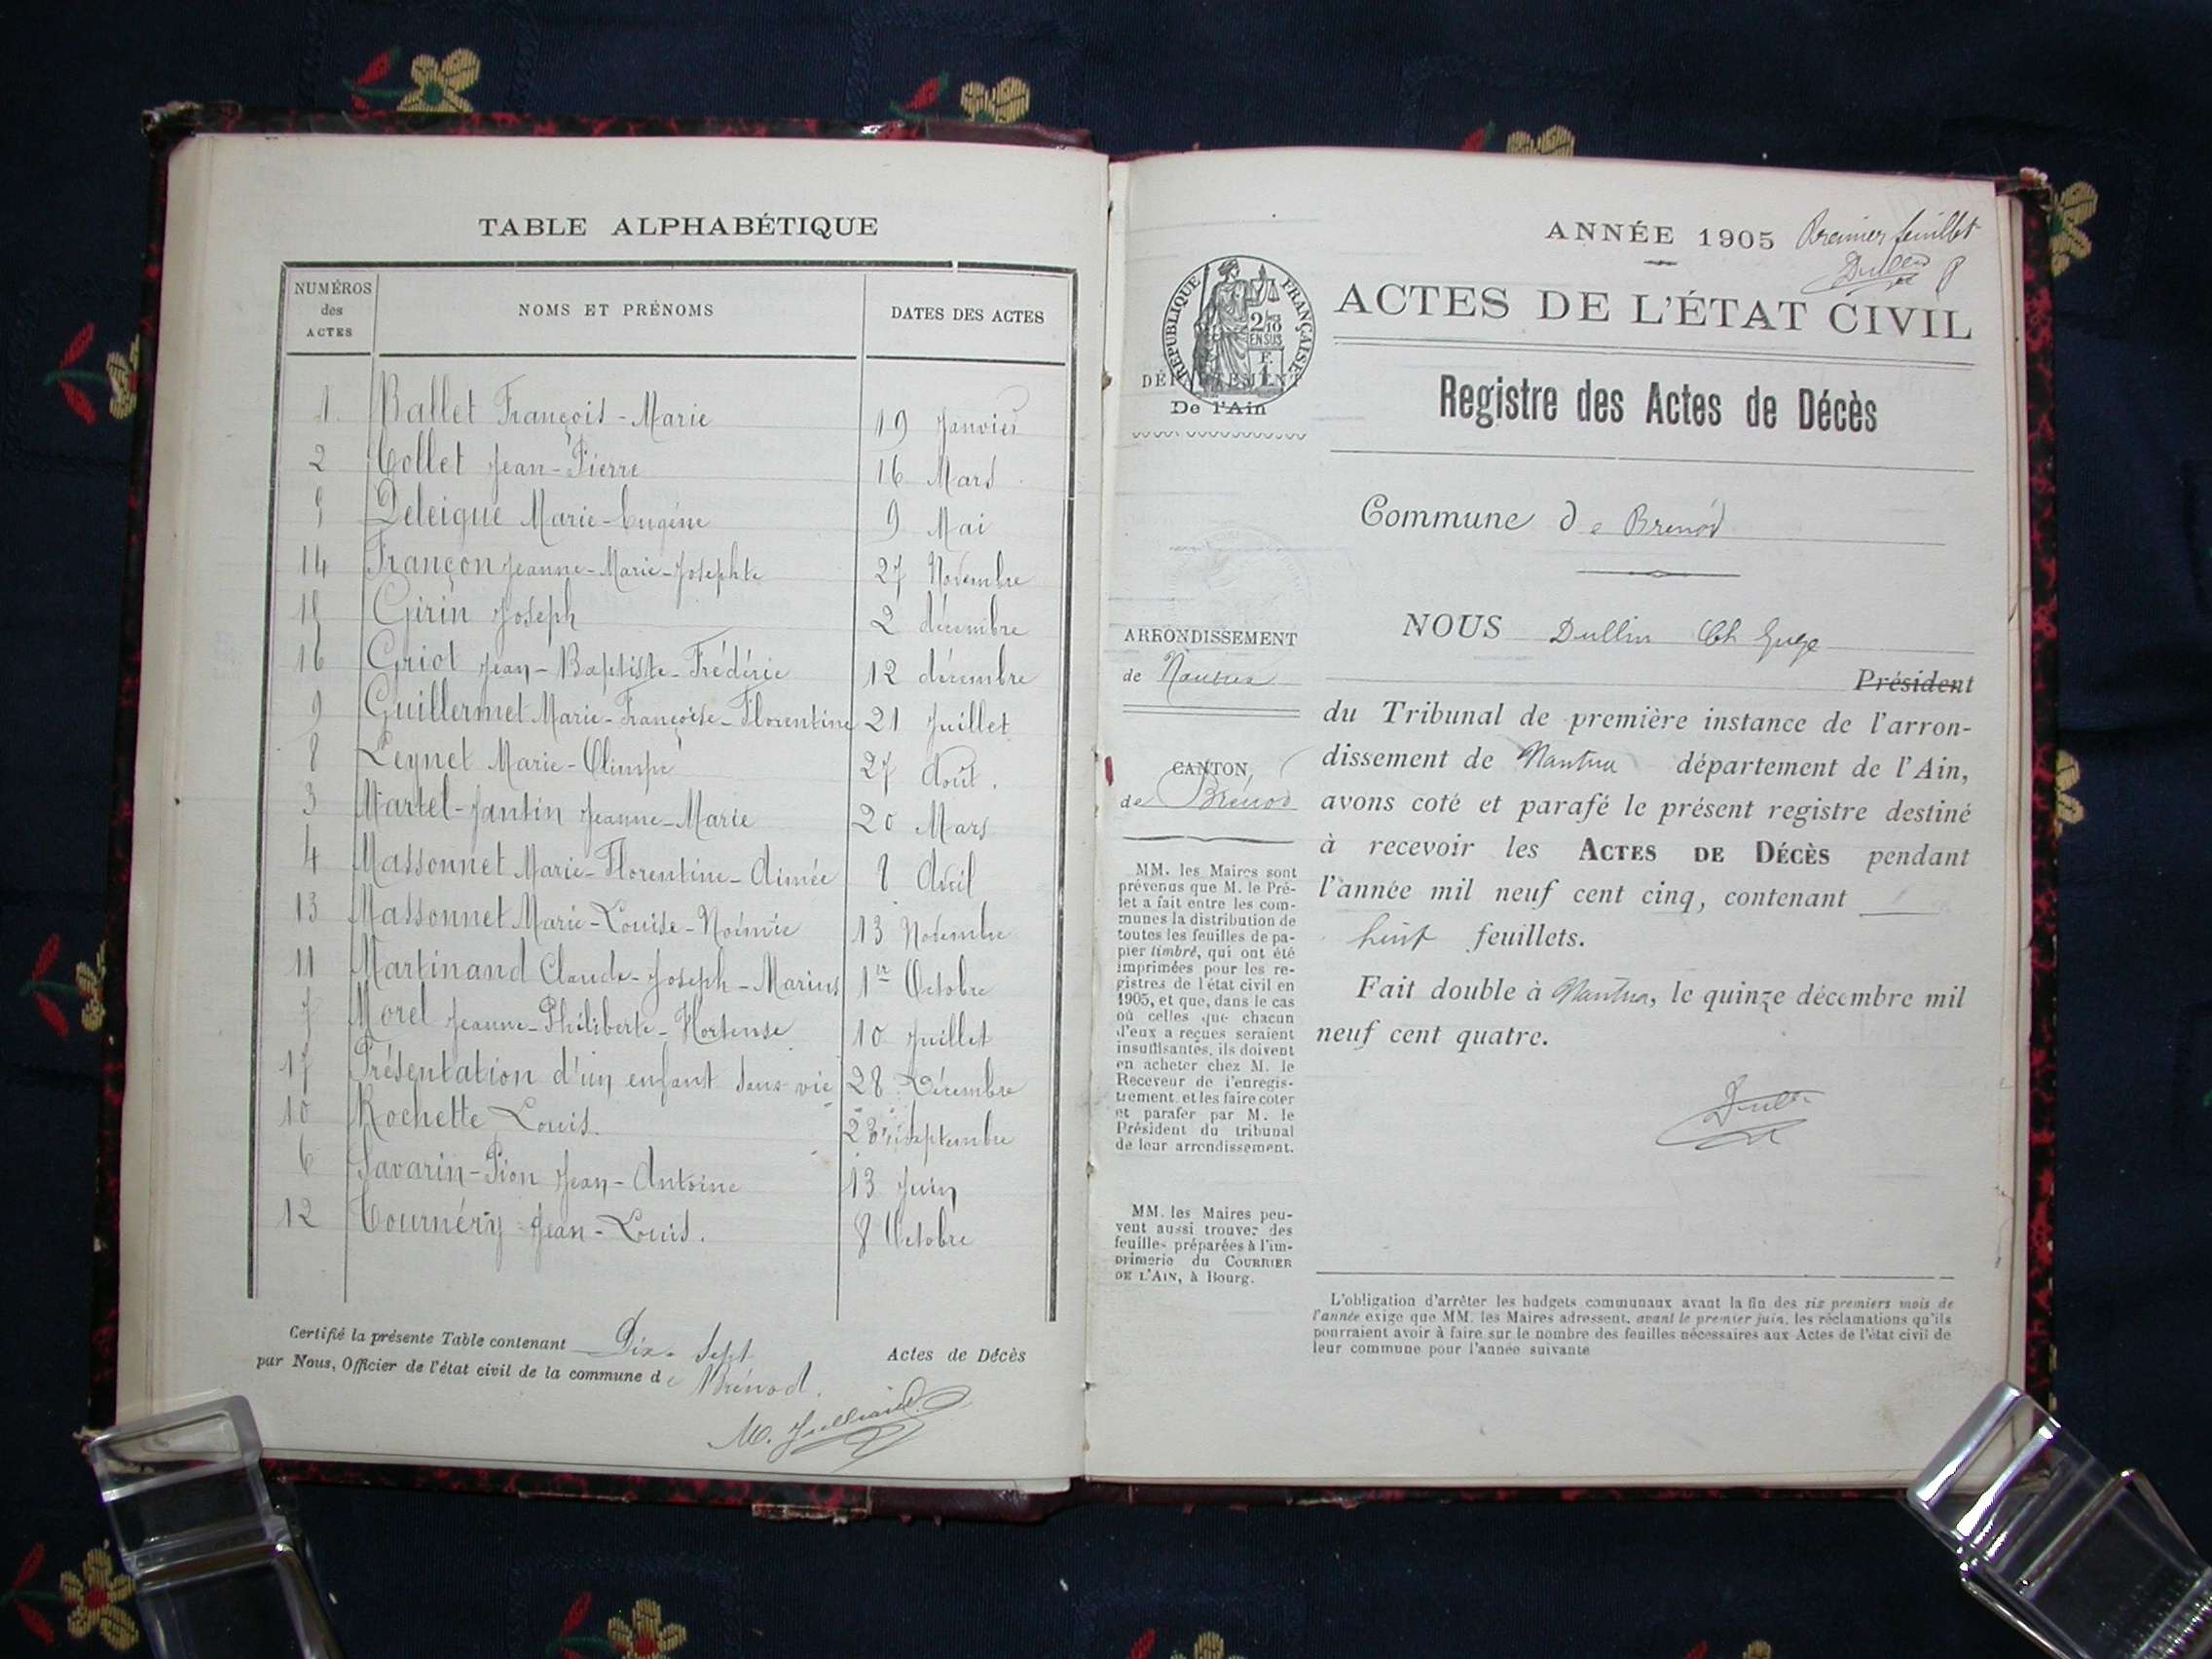 TABLE ALPHABÉTIQUE
NUMÉROS
des
ACTES
NOMS ET PRÉNOMS
DATES DES ACTES
1 Ballet François-Marie 19 Janvier
2 Collet Jean-Pierre 16 Mars
5 Deleigue Marie-Eugéne 9 Mai
14 Françon Jeanne-Marie-Josephte 27 Novembre
15 Girin Joseph 2 décembre
16 Griot Jean-Baptiste-Frédéric 12 décembre
9 Guillermet Marie-Françoise-Florentine 21 Juillet
8 Leynet Marie-Olimpe 27 Août.
3 Martel-Jantin Jeanne-Marie 20 Mars
4 Massonnet Marie-Florentine-Aimée 8 Avril
13 Massonnet Marie-Louise-Noémie 13 Novembre
11 Martinand Claude-Joseph-Marius 1er Octobre
7 Morel Jeanne-Philiberte-Hortense 10 Juillet
17 Présentation d'un enfant sans vie 28 Décembre
10 Rochette Louis. Septembre
6 Savarin-Pion Jean-Antoine 13 Juin
12 Tournéry Jean-Louis. 8 Octobre
Certifié la présente Table contenant Dix-Sept Actes de Décès
par Nous, Officier de l'état civil de la commune de Brénod.
M. Julliard
ANNÉE 1905 Premier feuillet
Dullin
ACTES DE L'ÉTAT CIVIL
RÉPUBLIQUE FRANÇAISE
2/10
EN SUS
F.
1
DÉPARTEMENT
De l'Ain
Registre des Actes de Décès
Commune de Brenod
ARRONDISSEMENT
de Nantua
CANTON
de Brénod
MM. les Maires sont
prévenus que M. le Pré-
fet a fait entre les com-
munes la distribution de
toutes les feuilles de pa-
pier timbré, qui ont été
imprimées pour les re-
gistres de l'état civil en
1905, et que, dans le cas
où celles que chacun
d'eux a reçues seraient
insuffisantes, ils doivent
en acheter chez M. le
Receveur de l'enregis-
trement, et les faire coter
et parafer par M. le
Président du tribunal
de leur arrondissement.
MM. les Maires peu-
vent aussi trouver des
feuilles préparées à l'im-
primerie du COURRIER
DE L'AIN, à Bourg.
NOUS Dullin Ch Juge
Président
du Tribunal de première instance de l'arron-
dissement de Nantua département de l'Ain,
avons coté et parafé le présent registre destiné
à recevoir les ACTES DE DÉCÈS pendant
l'année mil neuf cent cinq, contenant
huit feuillets.
Fait double à Nantua, le quinze décembre mil
neuf cent quatre.
Dullin
L'obligation d'arrêter les budgets communaux avant la fin des six premiers mois de
l'année exige que MM. les Maires adressent, avant le premier juin, les réclamations qu'ils
pourraient avoir à faire sur le nombre des feuilles nécessaires aux Actes de l'état civil de
leur commune pour l'année suivante